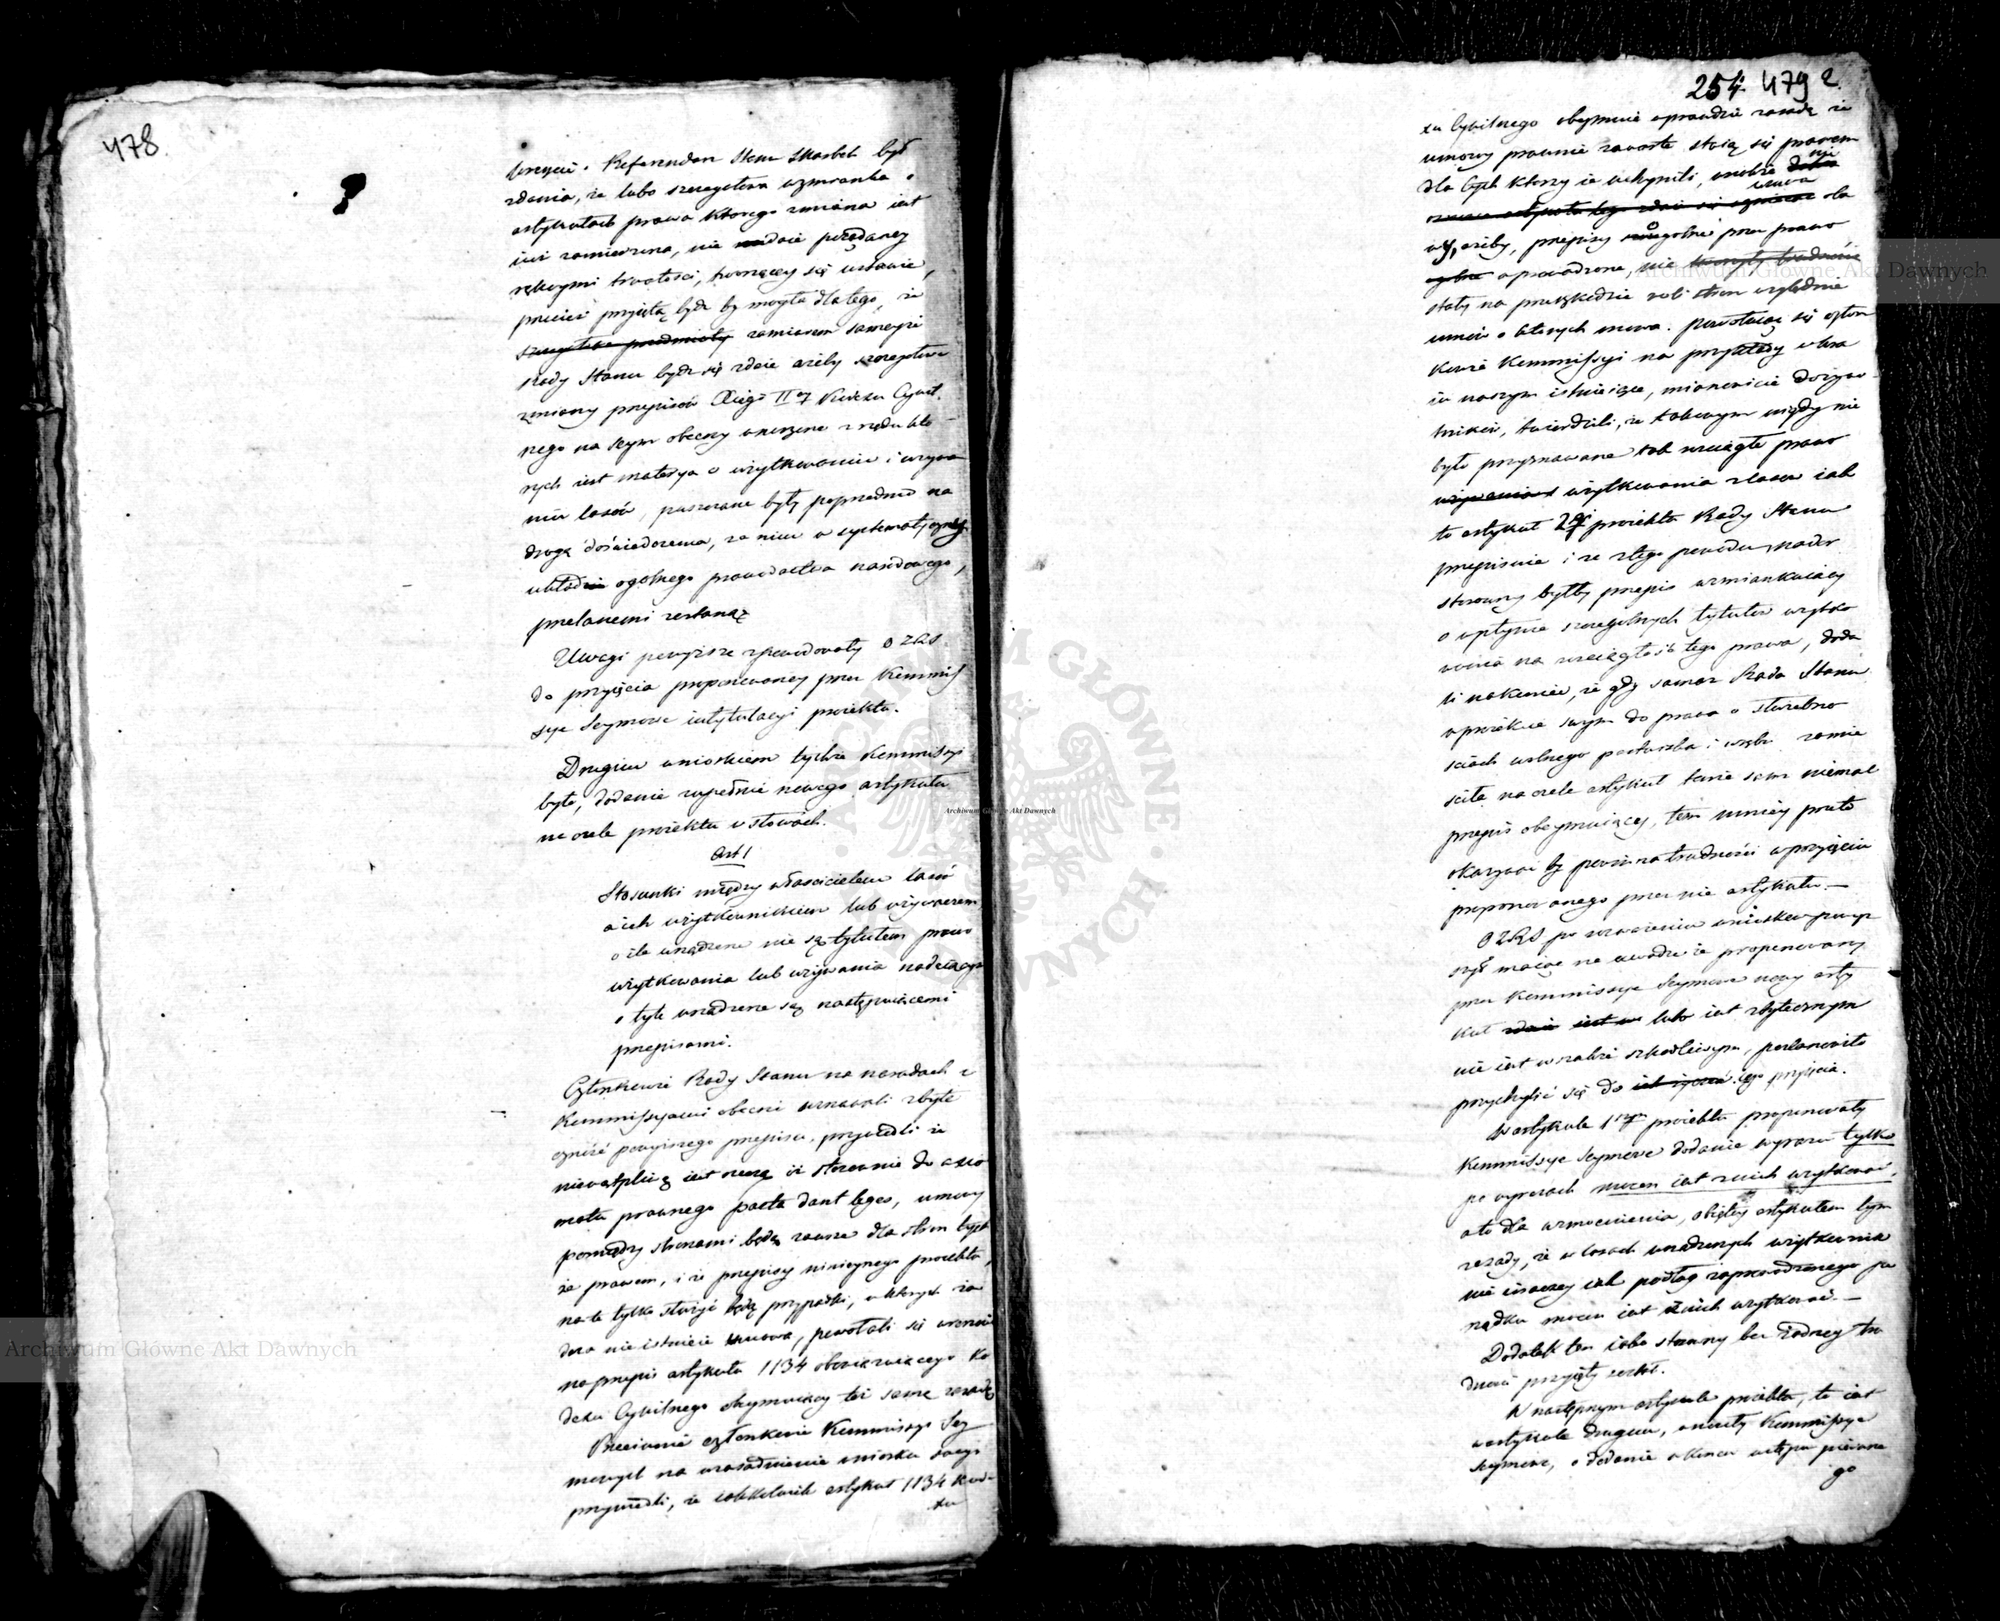 478
Referendarz Stanu Skarbek był
zdania, że lubo szczególna wzmianka o
artykułach prawa którego zmiana iest
iuż zamierzona, nie nadaie pożądaney
rękoymi trwałości, tworzącey się ustawie,
przecież przyiętą bydź by mogła dlatego, że
szczególne przedmioty zamiarem samey że
Rady Stanu bydź się zdaie ażeby szczegółowe
zmiany przepisów Xięgi II Kodexu Cywil-
nego na Seym obecny wnoszone z rzędu któ-
rych iest materya o użytkowaniu i używa
niu lasów, puszczane były poprzednio na
drogę doświadczenia, za nim w systematyczny
układ ogólnego prawodactwa narodowego,
przelanemi zostaną
Uwagi powyższe spowodowały OZRS.
do przyięcia proponowaney przez Kommis
sye Seymowe intytulacyi proiektu.
Drugim wnioskiem tychże Kommissyi
było, dodanie zupełnie nowego artykułu
na czele proiektu w słowach.
Art 1
Stosunki między właścicielem lasów
a ich użytkownikiem lub używaczem
o ile urządzone nie są tytułem prawo
użytkowania lub używania nadaiącym
o tyle urządzone są następuiącemi
przepisami.
Członkowie Rady Stanu na naradach z
Kommissyami obecni uznawali zbyte
czność powyższego przepisu, przywiedli że
niewątpliwą iest rzeczą iż stosownie do axio
matu prawnego pacta dant leges, umowy
pomiędzy stronami będą zawsze dla stron tych
że prawem, i że przepisy ninieyszego proiektu,
na te tylko służyć będą przypadki, w których ża
dna nie istnieie umowa, powołali się
na przepis artykułu 1134 obowiązuiącego Ko
dexu Cywilnego obeymuiący też samą zasadę
Przeciwnie członkowie Kommissyi Sey
mowych na uzasadnienie wniosku swego
przywiedli, że iakkolwiek artykuł 1134 Kode-
xu
254. 479 2
xu Cywilnego obeymuie wprawdzie zasadę że
umowy prawnie zawarte staią się prawem
dla tych którzy ie uchynili,
ażeby, przepisy szczególne przez prawo
wprowadzone, nie
stały na przeszkodzie woli stron względnie
umów o których mowa. Powołuiąc się człon
kowie Kommissyi na przykłady w kra
iu naszym istnieiące, mianowicie dożywo-
twierdzili, że takowym nigdy nie
było przyznawane tak rozciągłe prawo
użytkowania z lasów iak
to artykuł proiektu Rady Stanu
przepisuie i że z tego powodu nader
stosowny byłby przepis wzmiankuiący
o wpływie szczególnych tytułów użytko
wania na rozciągłość tego prawa, doda
li nakoniec, że gdy sama Rada Stanu
w proiekcie swym do prawa o służebno
ściach wolnego pastwiska i wrębu zamie
ściła na czele artykuł tenże sam niemal
przepis obeymuiący, tem mniey przeto
okazywać by powinna trudności w przyięciu
proponowanego przez nie artykułu.—
OZRS po rozważeniu wniosków powyż
szych maiąc na uwadze że proponowany
przez Kommissye Seymowe nowy arty
kuł lubo iest zbytecznym
nie iest wszakże szkodliwym, postanowiło
przychylić się do iego przyięcia.
W artykule 1 proiektu proponowały
Kommissye Seymowe dodanie wyrazu tylko
po wyrazach mocen iest z nich użytkować,
a to dla wzmocnienia, obiętey artykułem tym
zasady, że w lasach urządzonych użytkownik
nie inaczey iak podług zaprowadzonego po
rządku mocen iest z nich użytkować.—
Dodatek ten iako stosowny bez żadney tru
dności przyięty został.
W następnym artykule proiektu, to iest
w artykule drugim, wnosiły Kommissye
Seymowe, o dodanie w końcu ustępu pierwsze
go